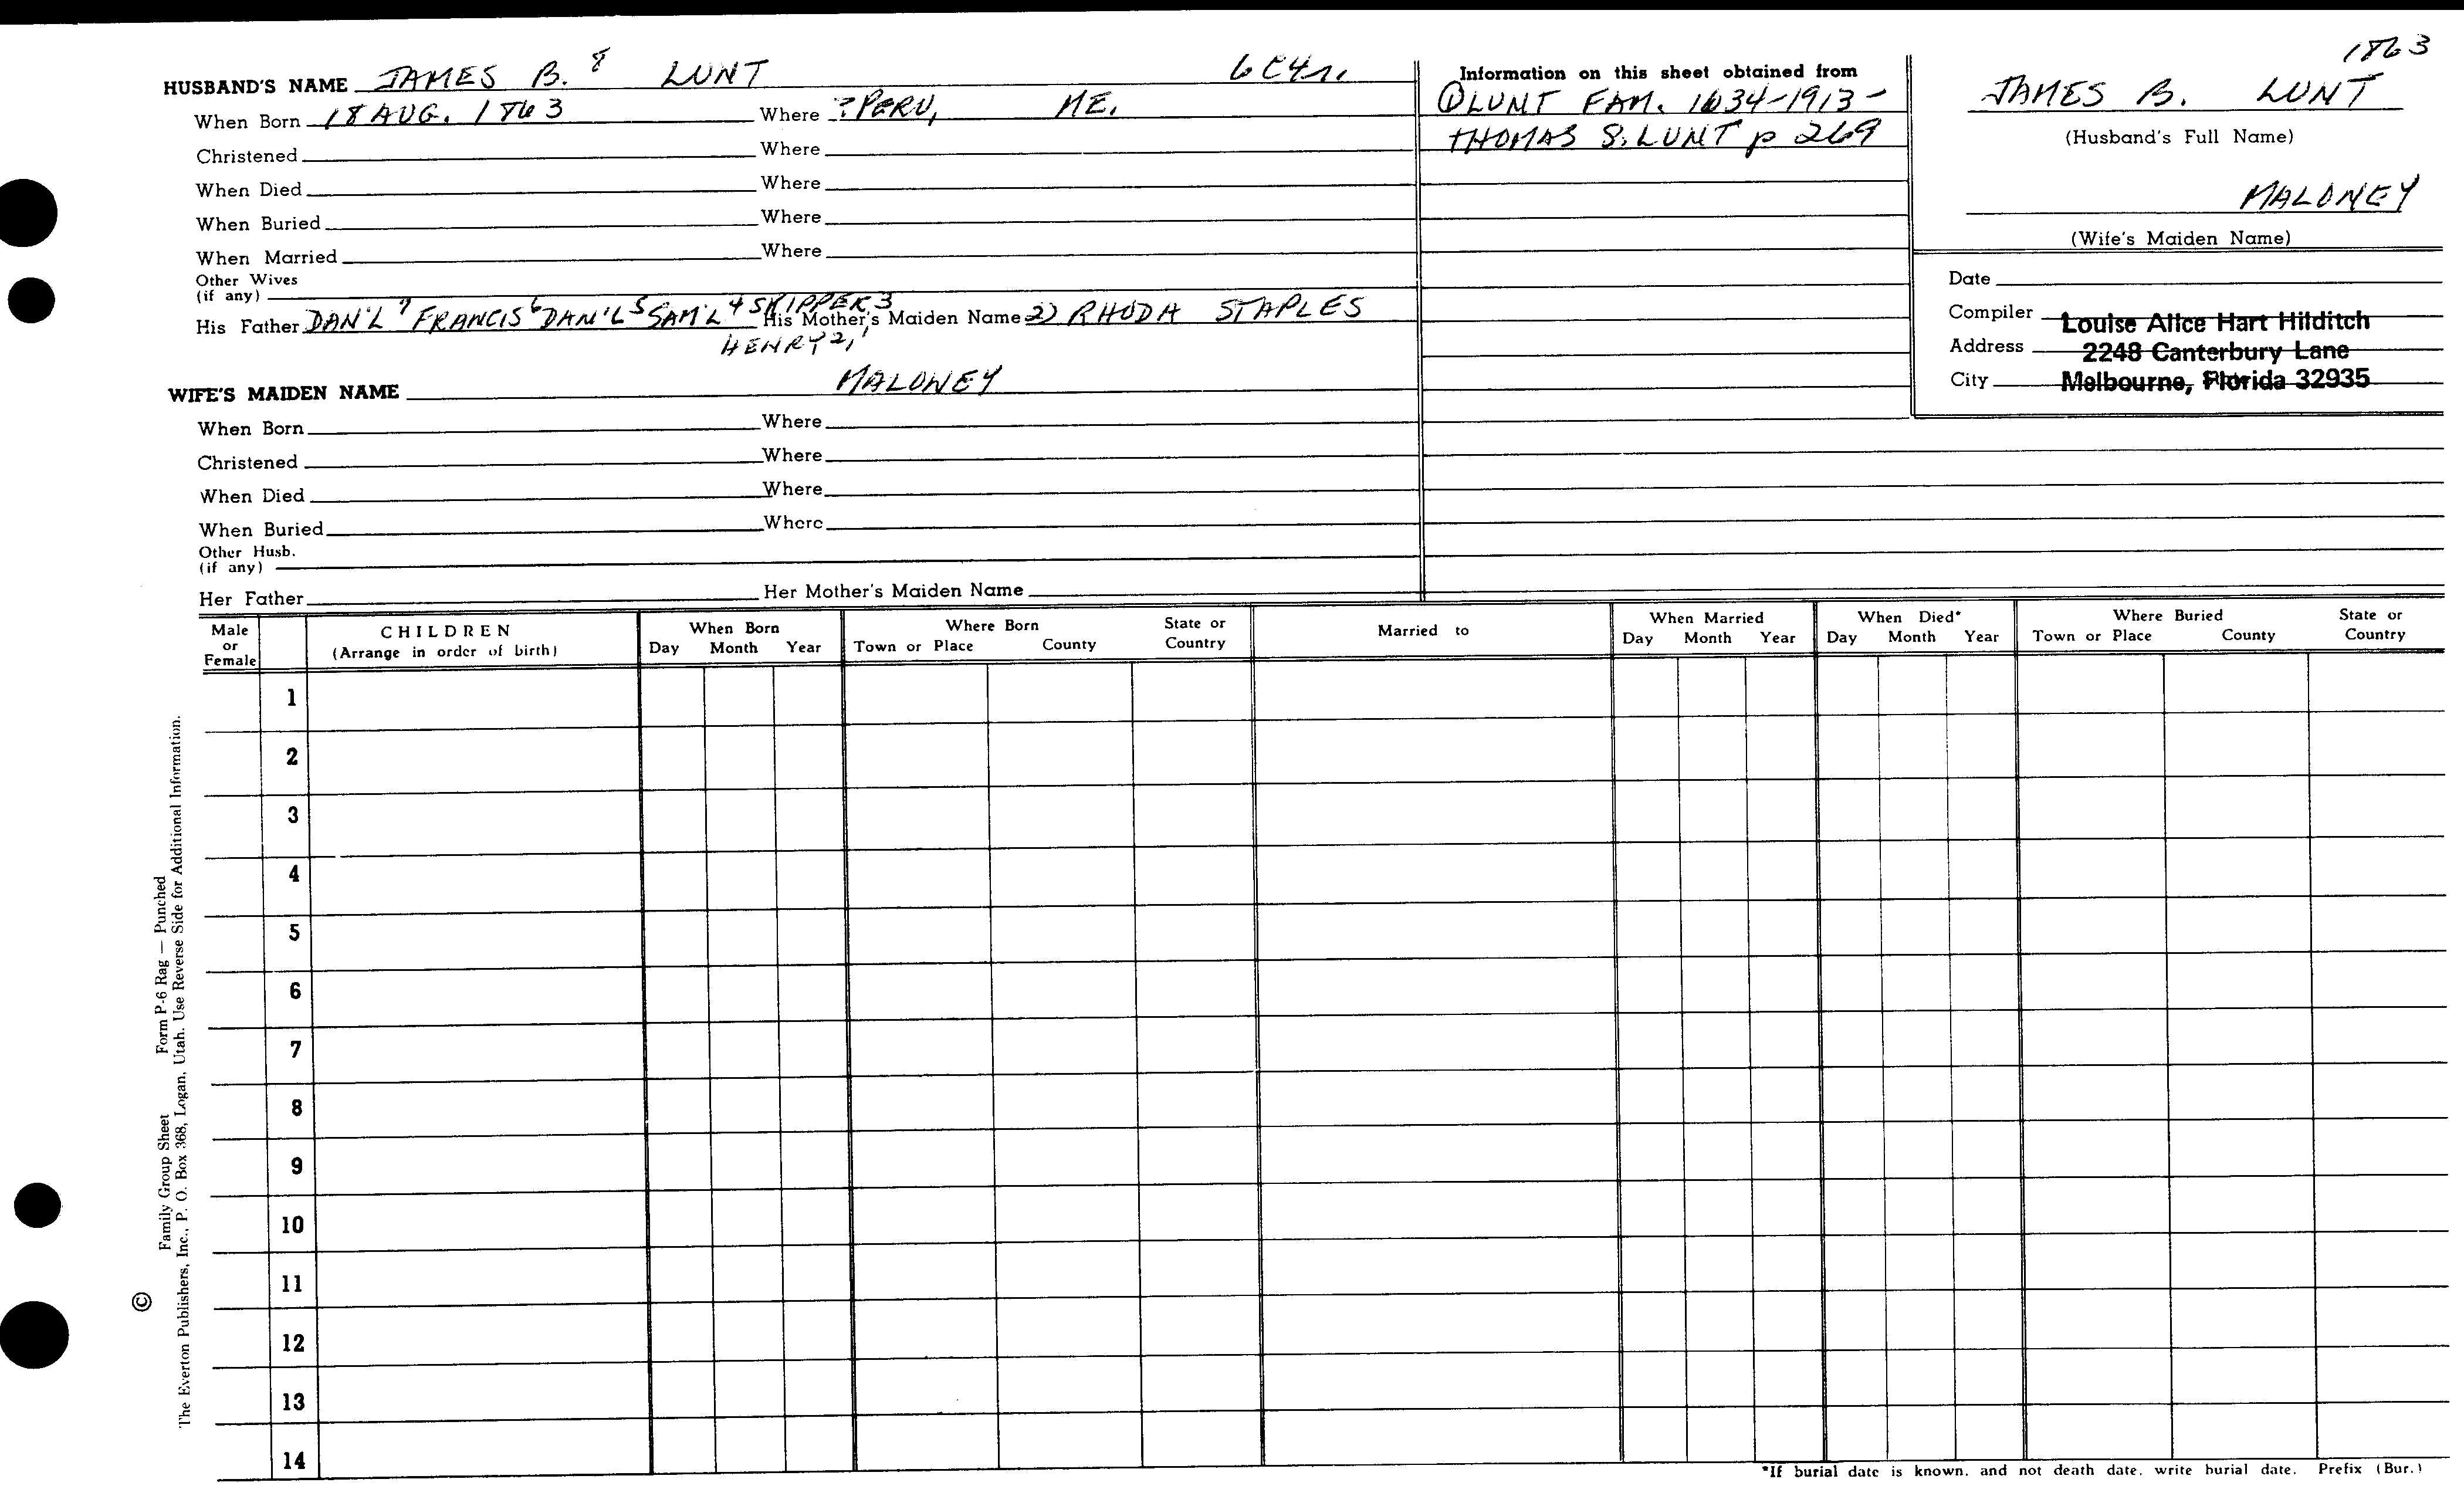 1863
HUSBAND'S NAME JAMES B. 8 LUNT
When Born 18 AUG. 1863 Where ? PERU, ME.
Christened Where
When Died Where
When Buried Where
When Married Where
Other Wives
(if any)
His Father DAN'L 7 FRANCIS 6 DAN'L 5 SAM'L 4 SKIPPER 3 His Mother's Maiden Name 2) RHODA STAPLES
HENRY 2, 1
WIFE'S MAIDEN NAME MALONEY
When Born Where
Christened Where
When Died Where
When Buried Where
Other Husb.
(if any)
Her Father Her Mother's Maiden Name
Information on this sheet obtained from
① LUNT FAM. 1634-1913-
THOMAS S. LUNT p 269
JAMES B. LUNT
(Husband's Full Name)
MALONEY
(Wife's Maiden Name)
Date
Compiler Louise Alice Hart Hilditch
Address 2248 Canterbury Lane
City Melbourne, Florida 32935
Male or Female CHILDREN (Arrange in order of birth) When Born Day Month Year Where Born Town or Place County State or Country Married to When Married Day Month Year When Died* Day Month Year Where Buried Town or Place County State or Country
1
2
3
4
5
6
7
8
9
10
11
12
13
14
*If burial date is known, and not death date, write burial date. Prefix (Bur.)
© Family Group Sheet Form P-6 Rag — Punched
The Everton Publishers, Inc., P. O. Box 368, Logan, Utah. Use Reverse Side for Additional Information.